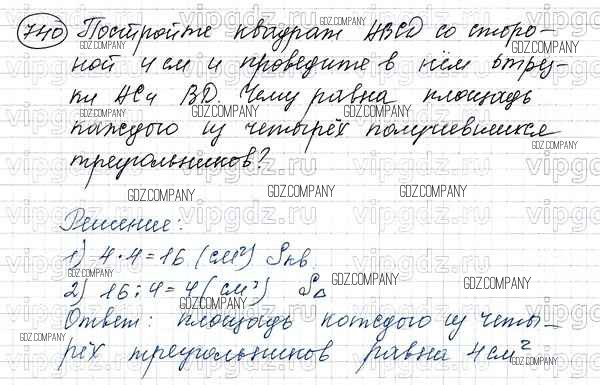 740 Постройте квадрат ABCD со сторо-
ной 4 см и проведите в нём отрез-
ки AC и BD. Чему равна площадь
каждого из четырёх получившихся
треугольников?
Решение:
1) 4·4=16 (см²) Sкв.
2) 16:4=4 (см²) S△
Ответ: площадь каждого из четы-
рёх треугольников равна 4 см²
GDZ.COMPANY
vipgdz.ru